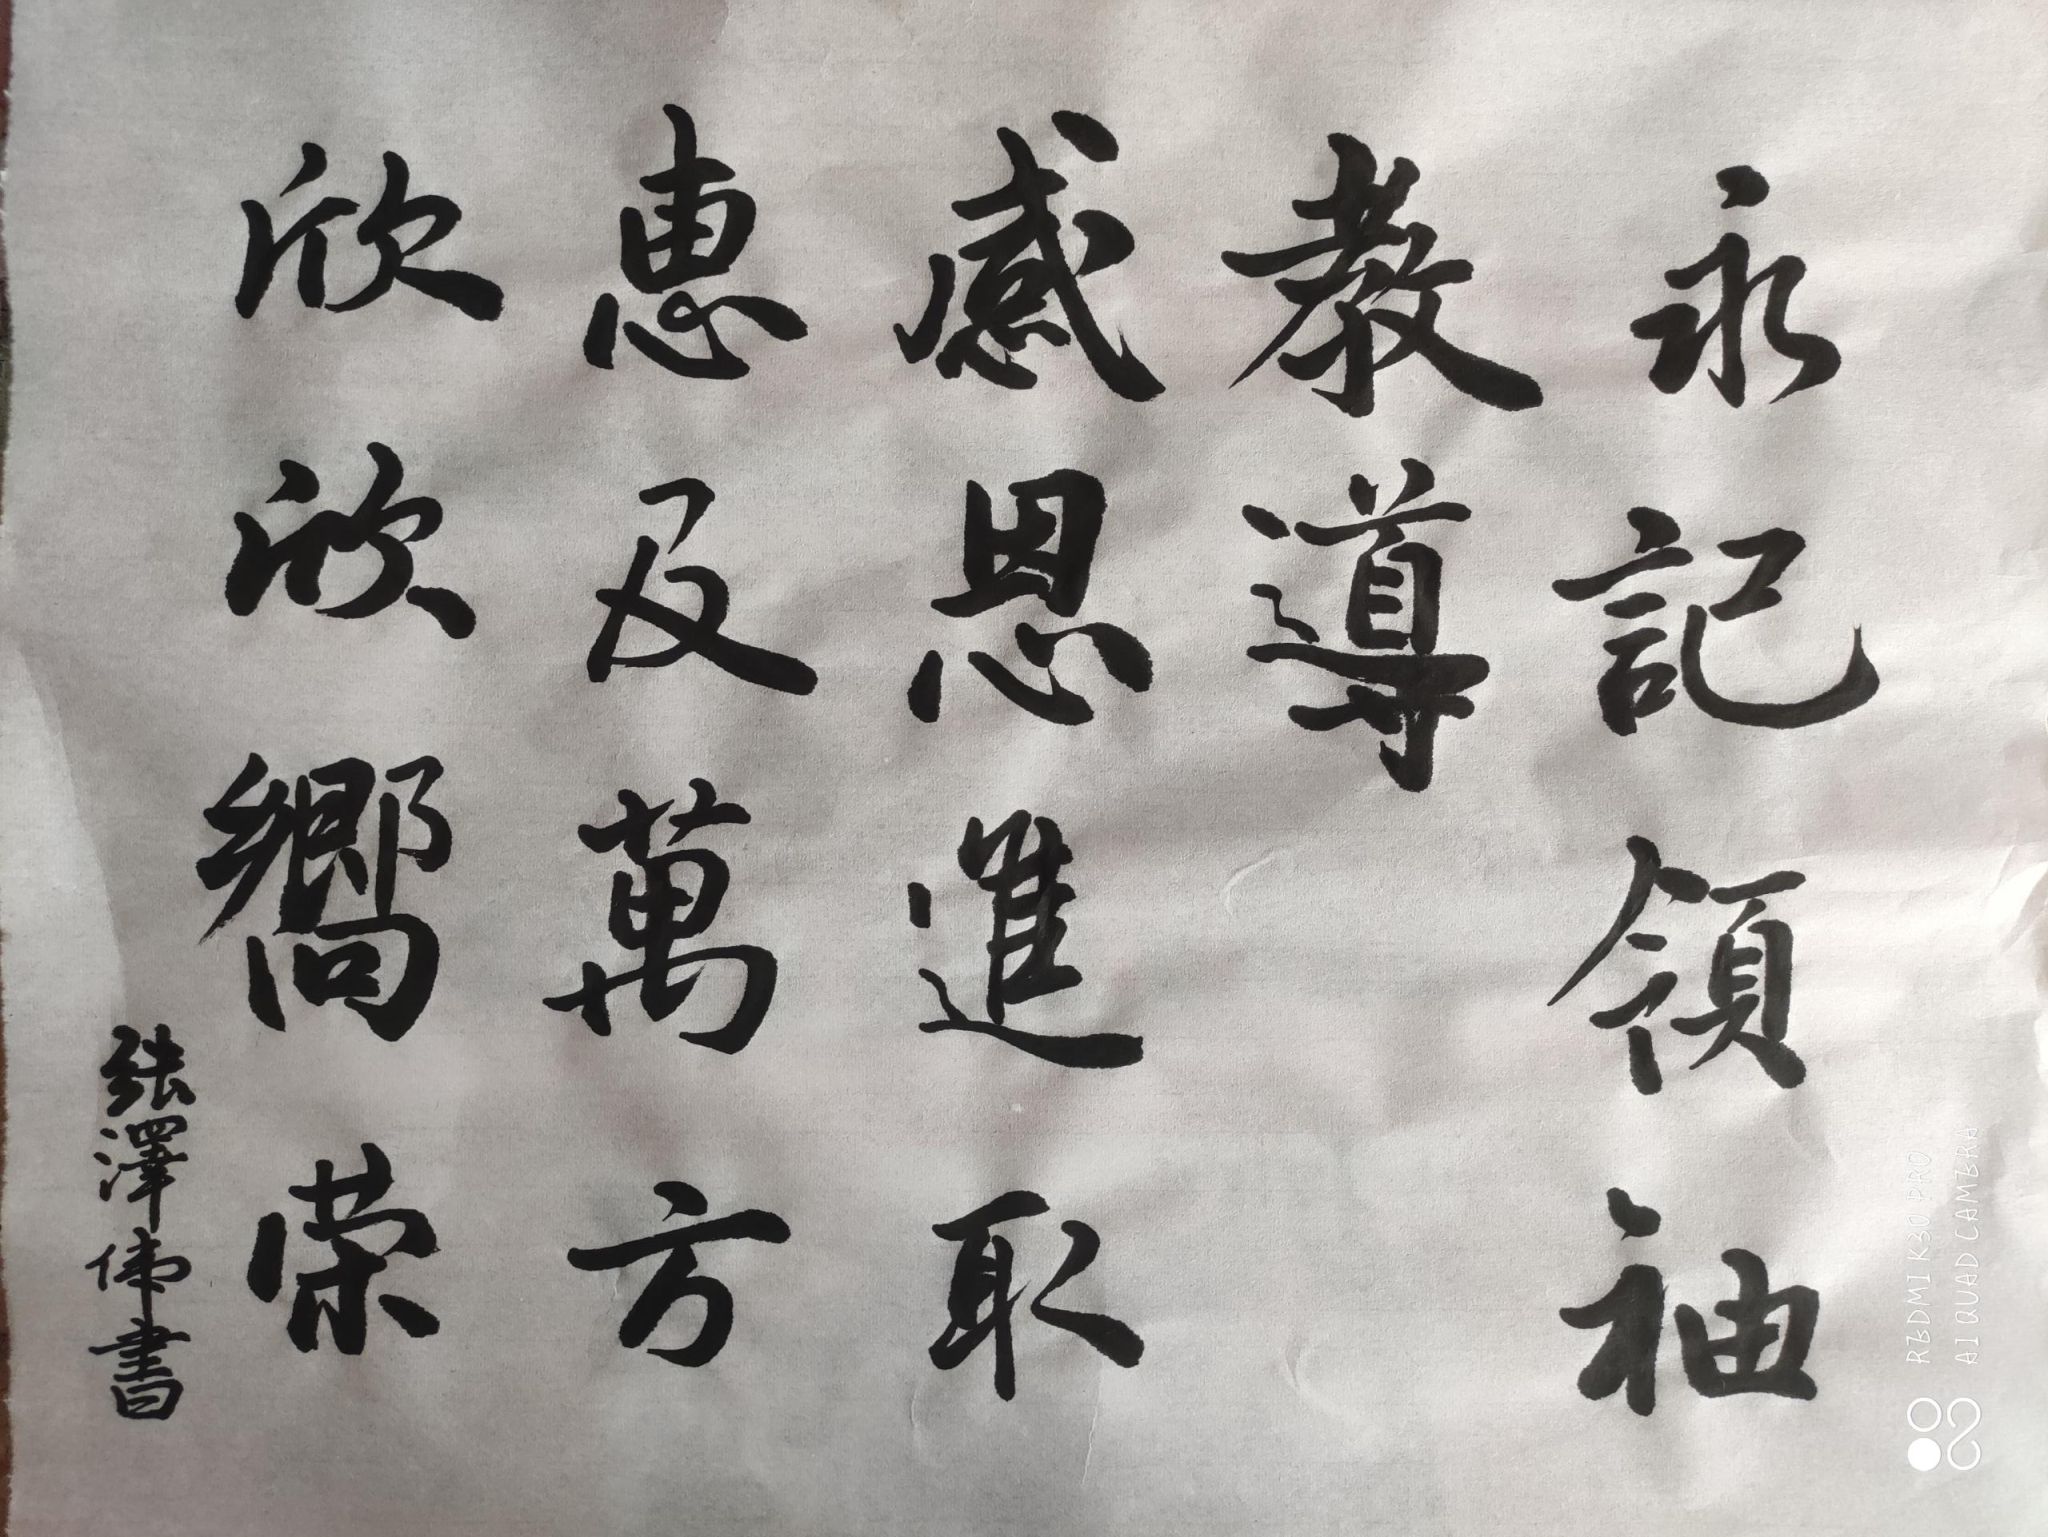 永記領袖
教導
感恩進取
惠及萬方
欣欣嚮荣
張澤偉書
REDMI K30 PRO
AI QUAD CAMERA